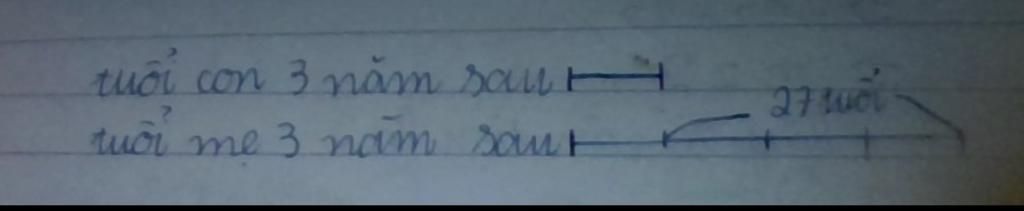 tuổi con 3 năm sau
27 tuổi
tuổi mẹ 3 năm sau